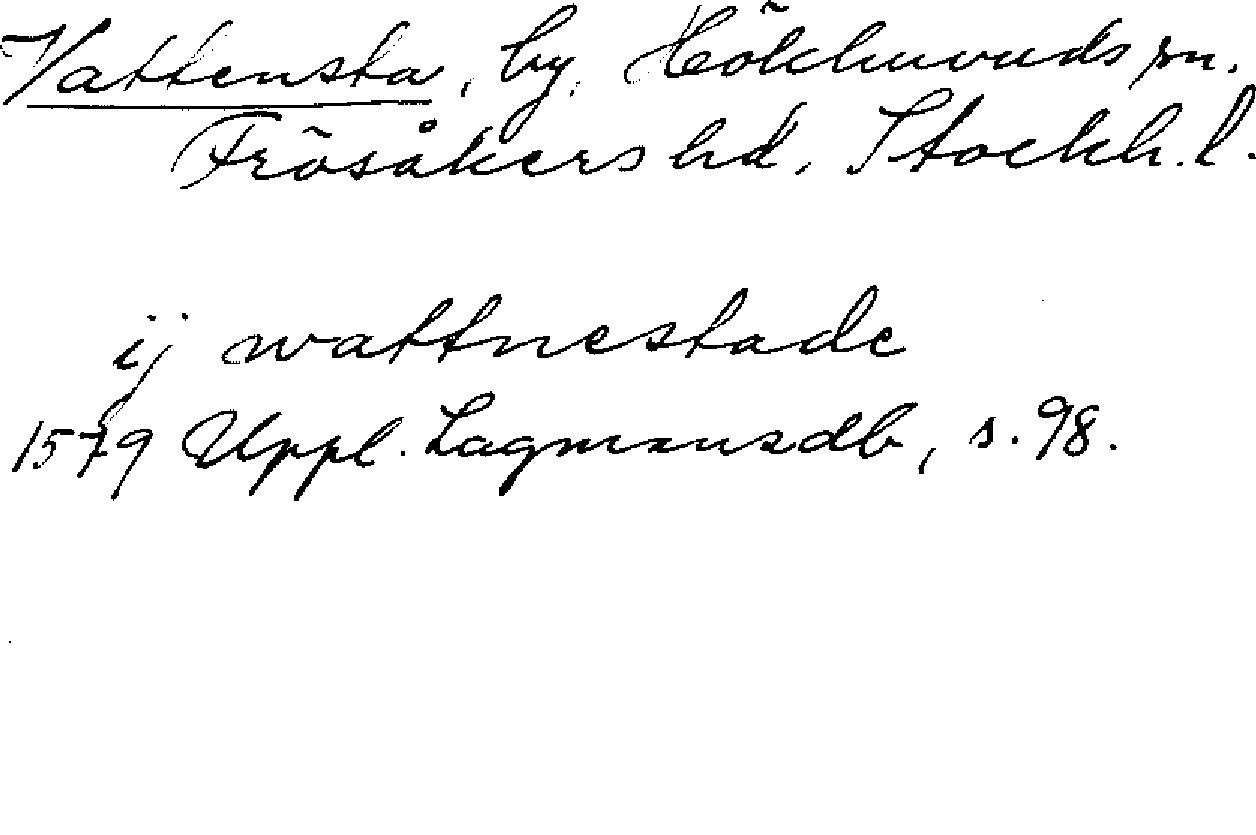 Vattensta, by, Hökhuvuds sn.
Frösåkers hd, Stockh. l.
ij wattnestade
1579 Uppl. Lagmansdb, s. 98.